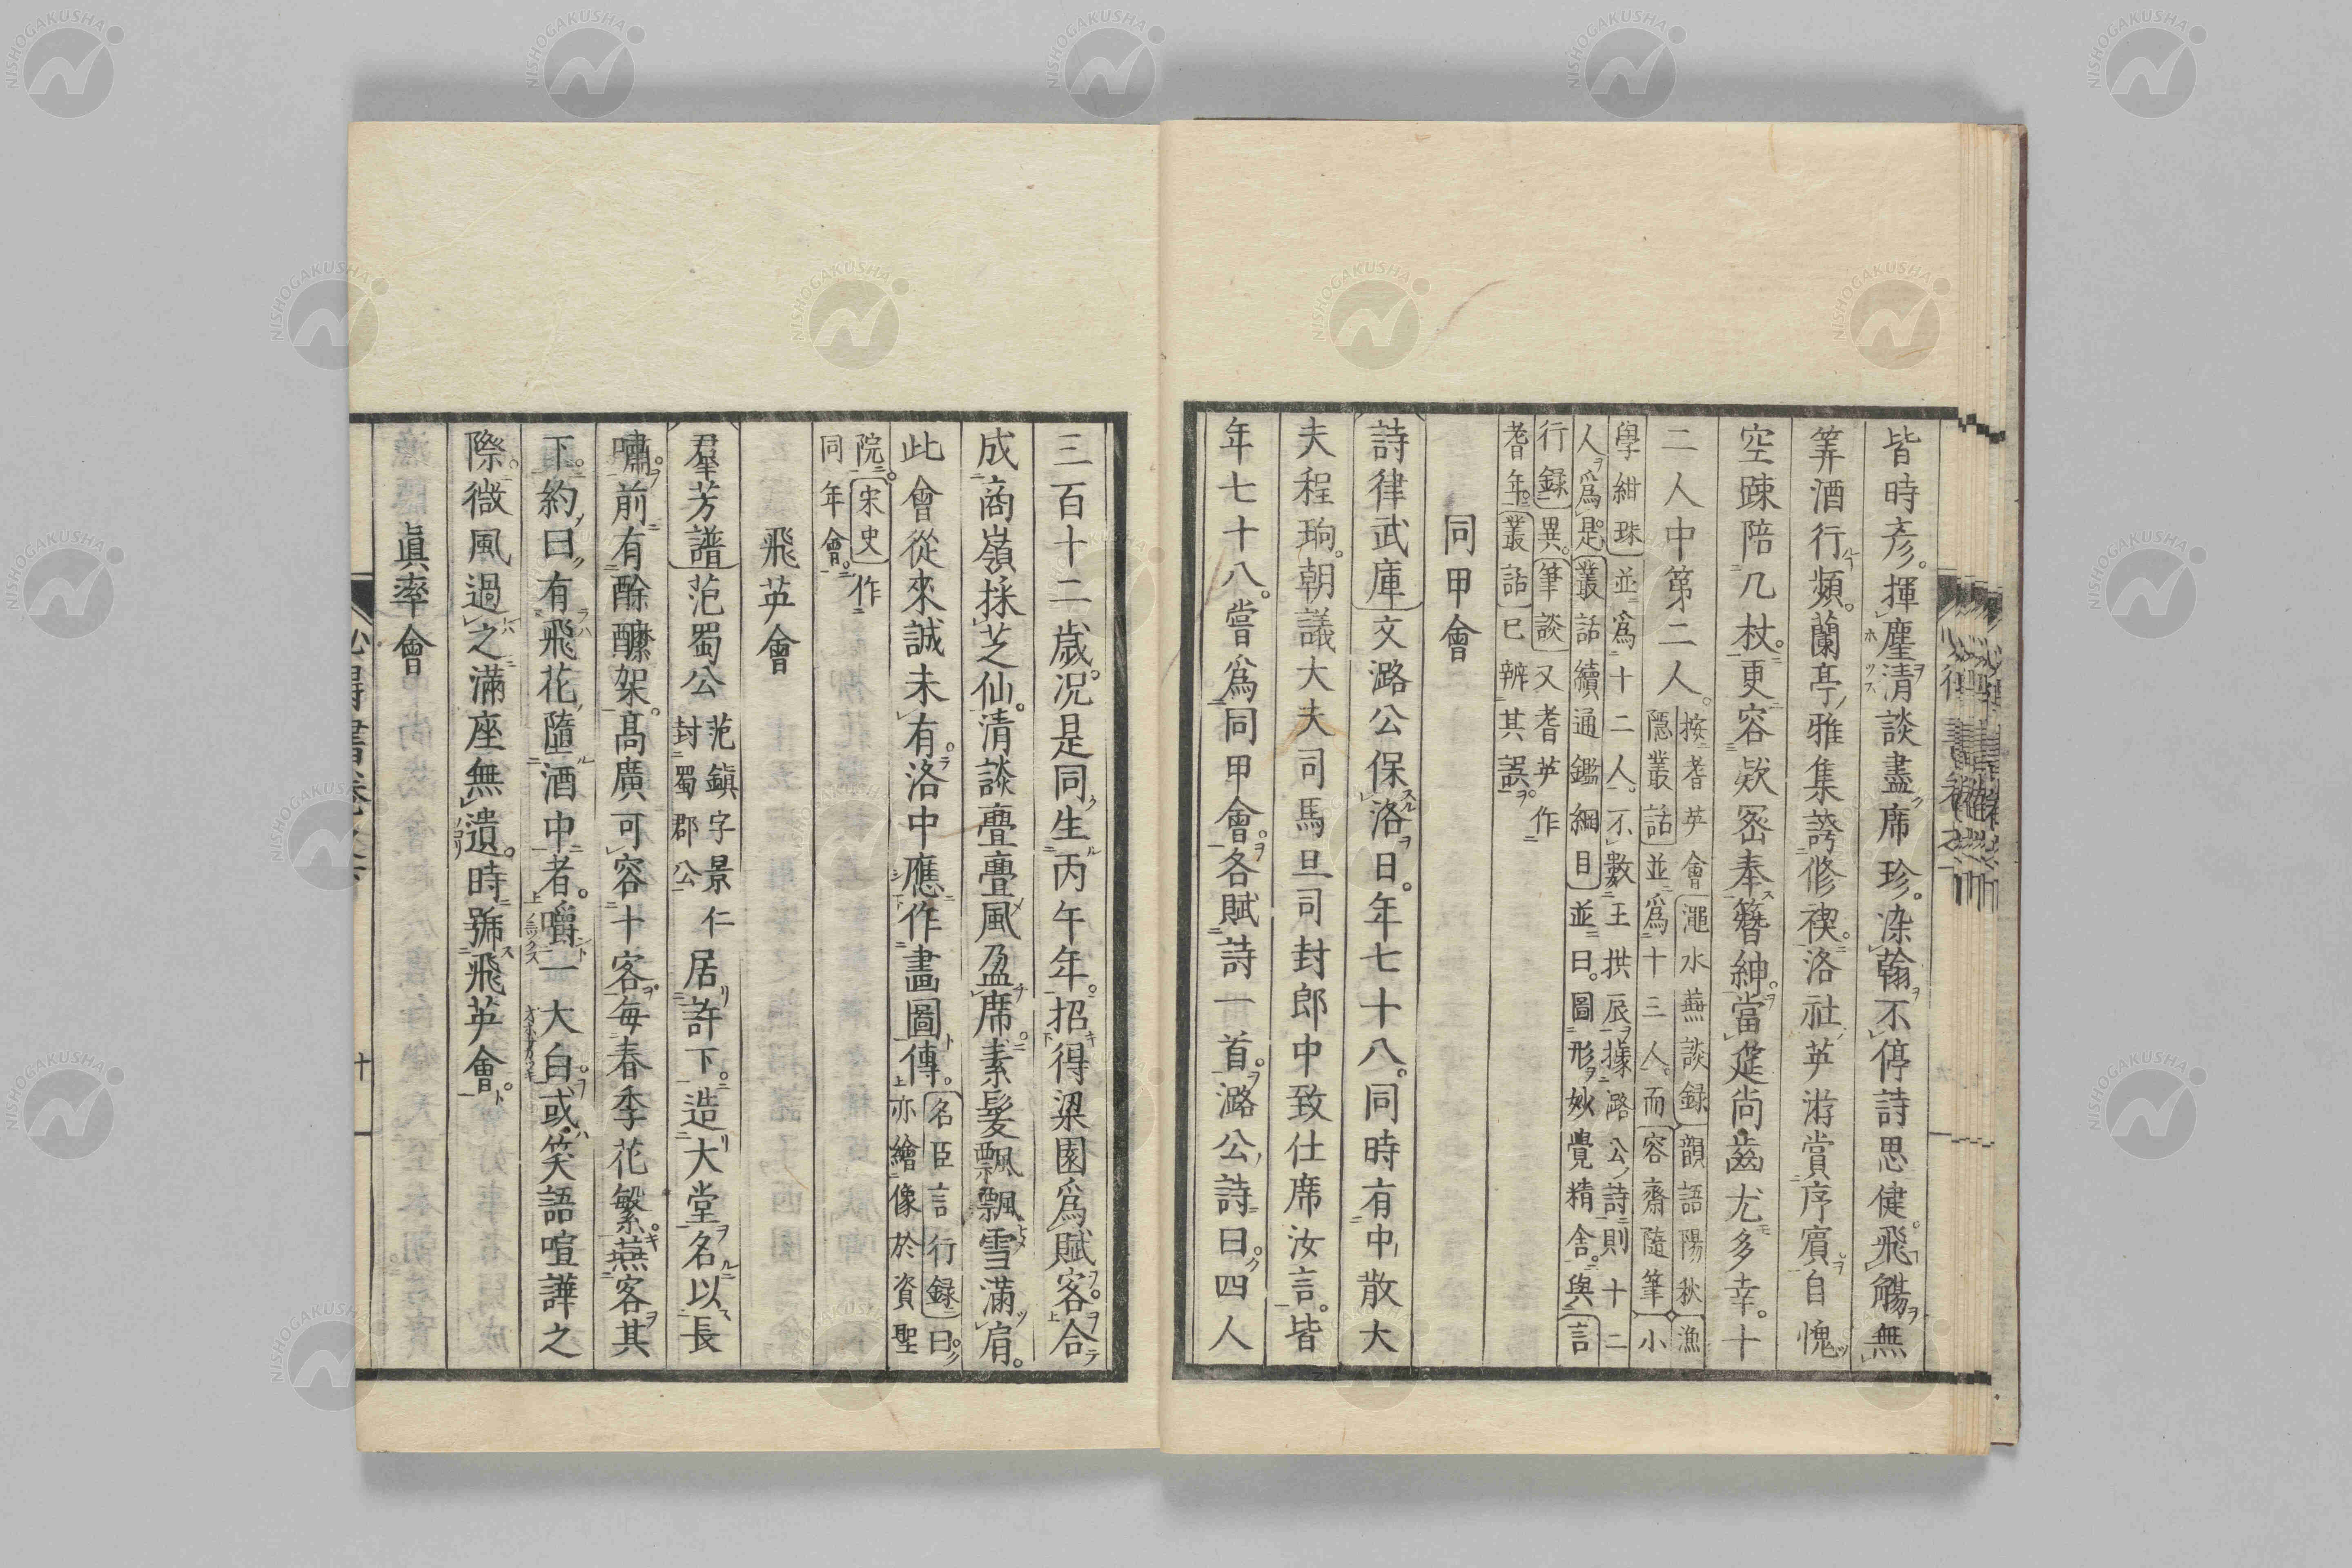 皆時彥。揮塵清談盡席珍。染翰不停詩思健。飛觴無
筭酒行頻。蘭亭雅集誇修禊。洛社英游賞序賓自愧
空疎陪几杖。更容欵密奉簪紳。當筵尚齒尤多幸。十
二人中第二人。
按耆英會澠水燕談録韻語陽秋漁
隱叢話並爲十三人。而容齋隨筆小
學紺珠並爲十二人。不數王拱辰據潞公詩則十二
人爲是。叢話續通鑑綱目並曰。圖形妙覺精舎。與言
行録異。筆談又耆英作
耆年。叢話已辨其誤。
同甲會
詩律武庫文潞公保洛日。年七十八。同時有中散大
夫程珦。朝議大夫司馬旦司封郎中致仕席汝言。皆
年七十八。嘗爲同甲會。各賦詩一首。潞公詩曰。四人
三百十二歳。况是同生丙午年。招得梁園爲賦客。合
成商嶺採芝仙。清談亹亹風盈席。素髮飄飄雪滿肩。
此會從來誠未有。洛中應作畫圖傳。
名臣言行録曰。
亦繪像於資聖
院。宋史作
同年會。
飛英會
羣芳譜范蜀公
范鎭字景仁
封蜀郡公
居許下。造大堂名以長
嘯。前有酴醾架。高廣可容十客。每春季花繁燕客其
下。約曰有飛花墮酒中者。嚼一大白。或笑語喧譁之
際。微風過之滿座無遺。時號飛英會。
眞率會
十